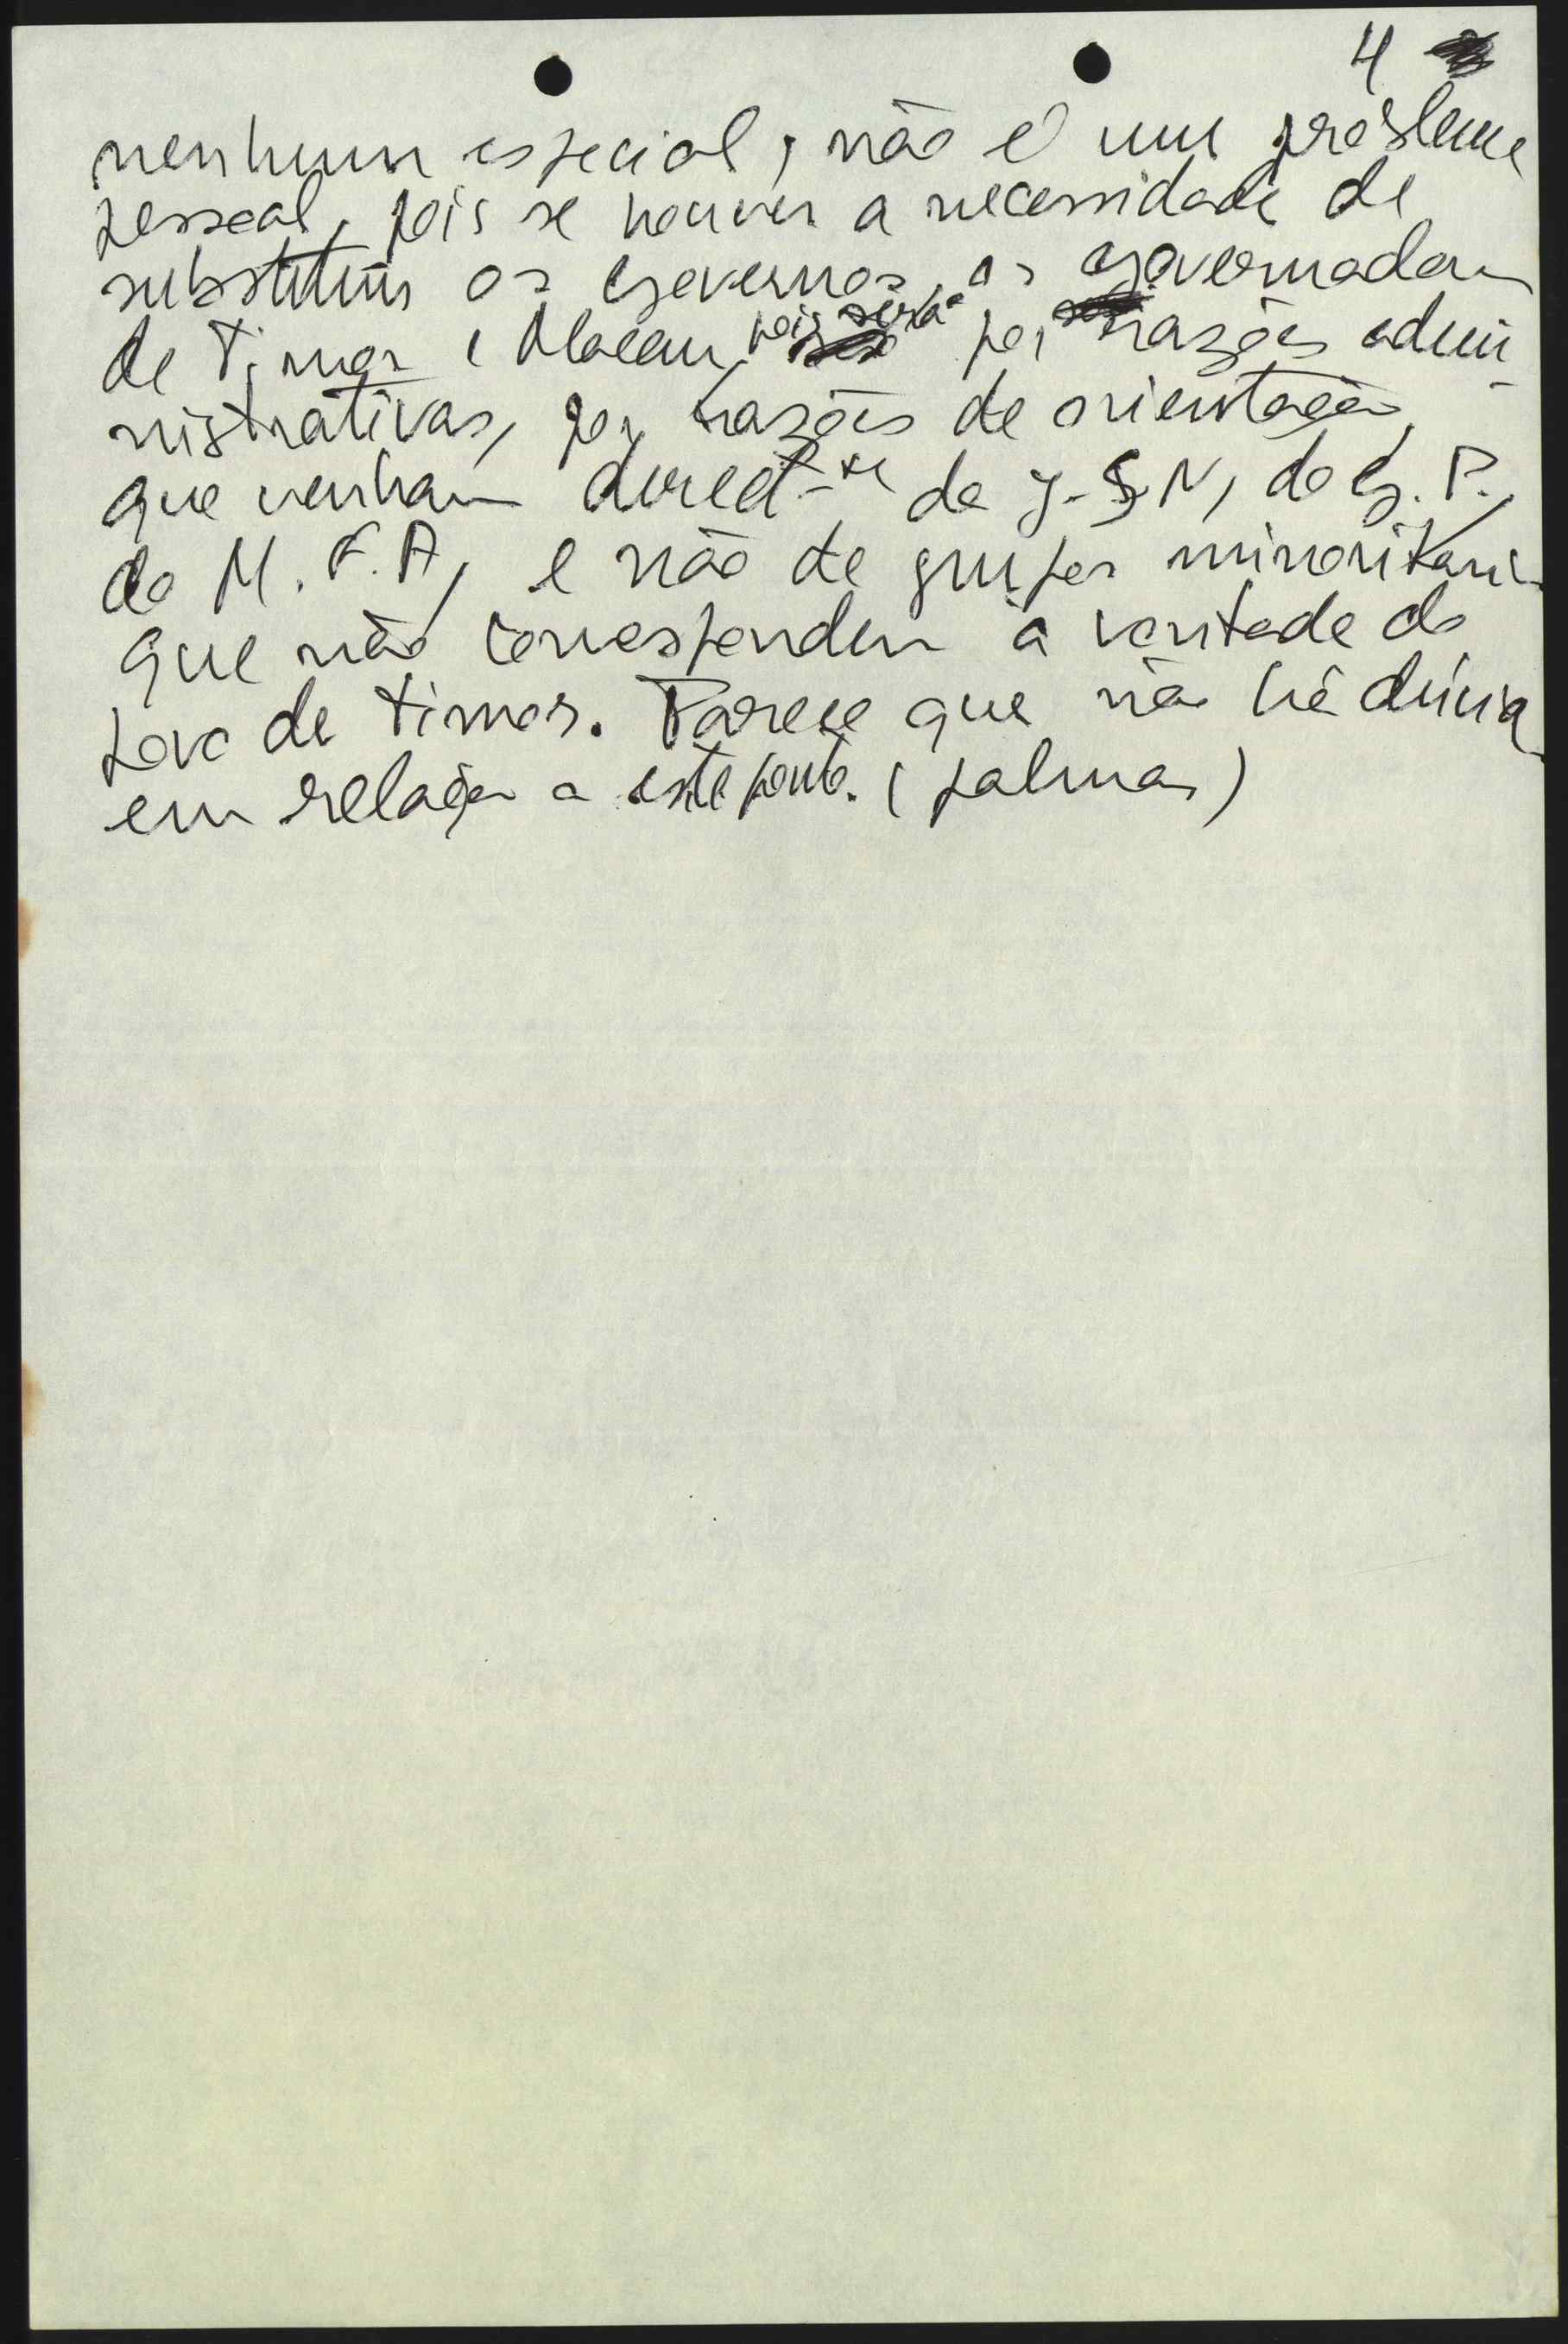 4
nenhum especial, não é um problema
pessoal, pois se houver a necessidade de
substituir os governos, os governadores
de Timor e Macau, pois será por razões admi-
nistrativas, por razões de orientação,
que venham direct-te da J.S.N, do G. P.,
do M. F. A, e não de grupos minoritarios
que não correspondem à vontade do
povo de timor. Parece que não há dúvida
em relação a este ponto. (palmas)